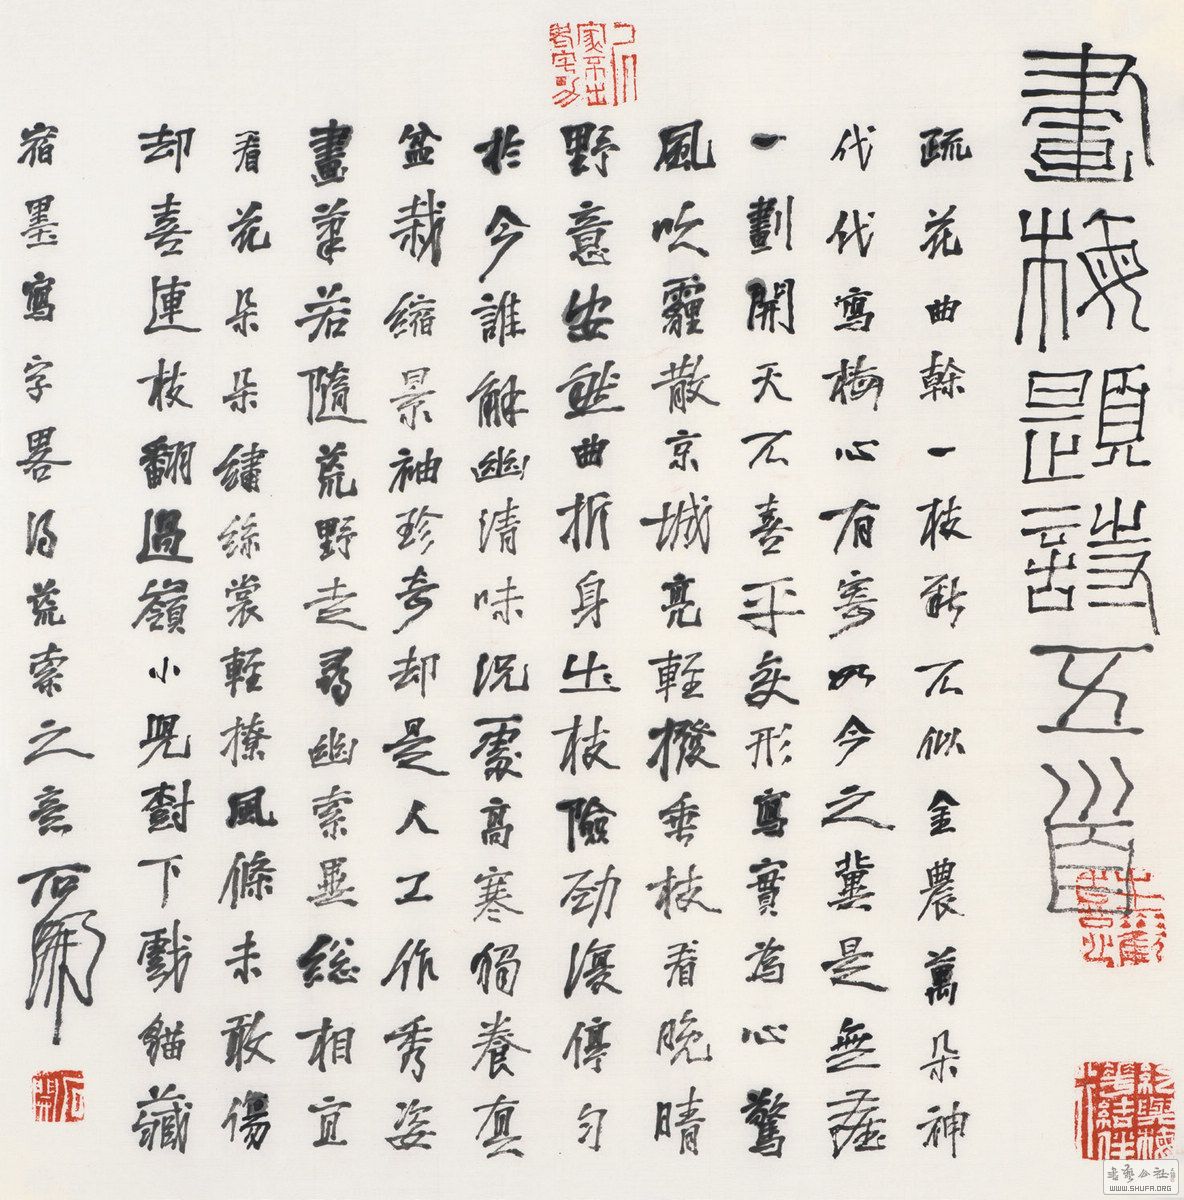 畫梅題詩五首
疏花曲幹一枝新不似金農萬朵神
代代寫梅心有寄如今之冀是無塵
一劃開天不喜平變形寫實為心驚
風吹霾散京城亮輕撥垂枝看晚晴
野意安然曲折身出枝險勁復停勻
於今誰解幽清味況處高寒獨養真
盆栽縮景袖珍奇却是人工作秀姿
畫筆若隨荒野走尋幽索異總相宜
看花朵朵繡絲裳輕撩風條未敢傷
却喜連枝翻過嶺小兒樹下戲貓藏
宿墨寫字畧得荒索之意石開
石開
WWW.SHUFA.ORG